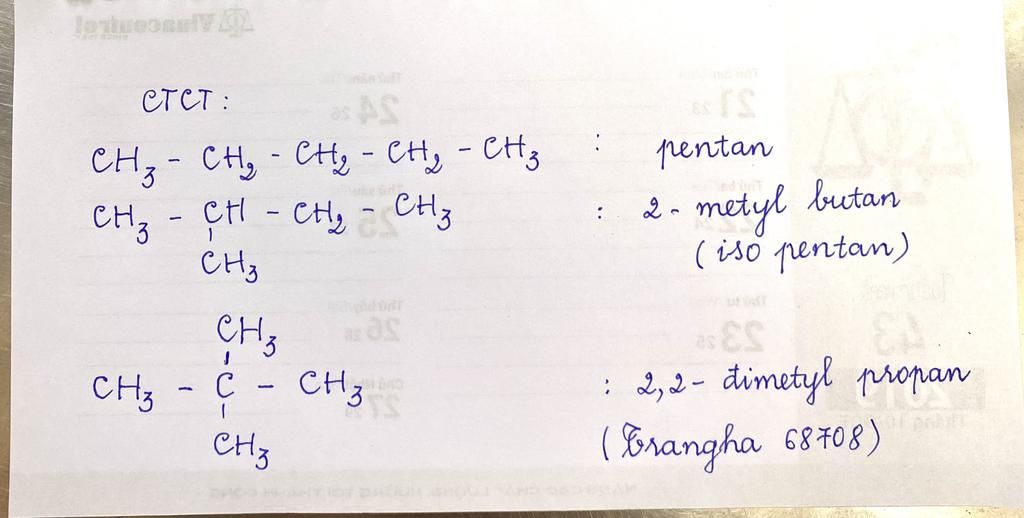 CTCT :
CH₃ - CH₂ - CH₂ - CH₂ - CH₃ : pentan
CH₃ - CH - CH₂ - CH₃ : 2 - metyl butan
CH₃ (iso pentan)
CH₃
CH₃ - C - CH₃ : 2,2 - đimetyl propan
CH₃ (Trangha 68708)